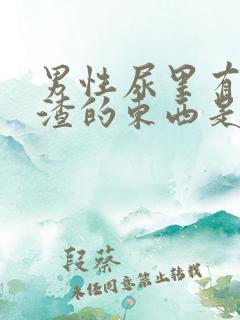 男性尿里有
渣的东西是
段蔡
未经同意禁止转载